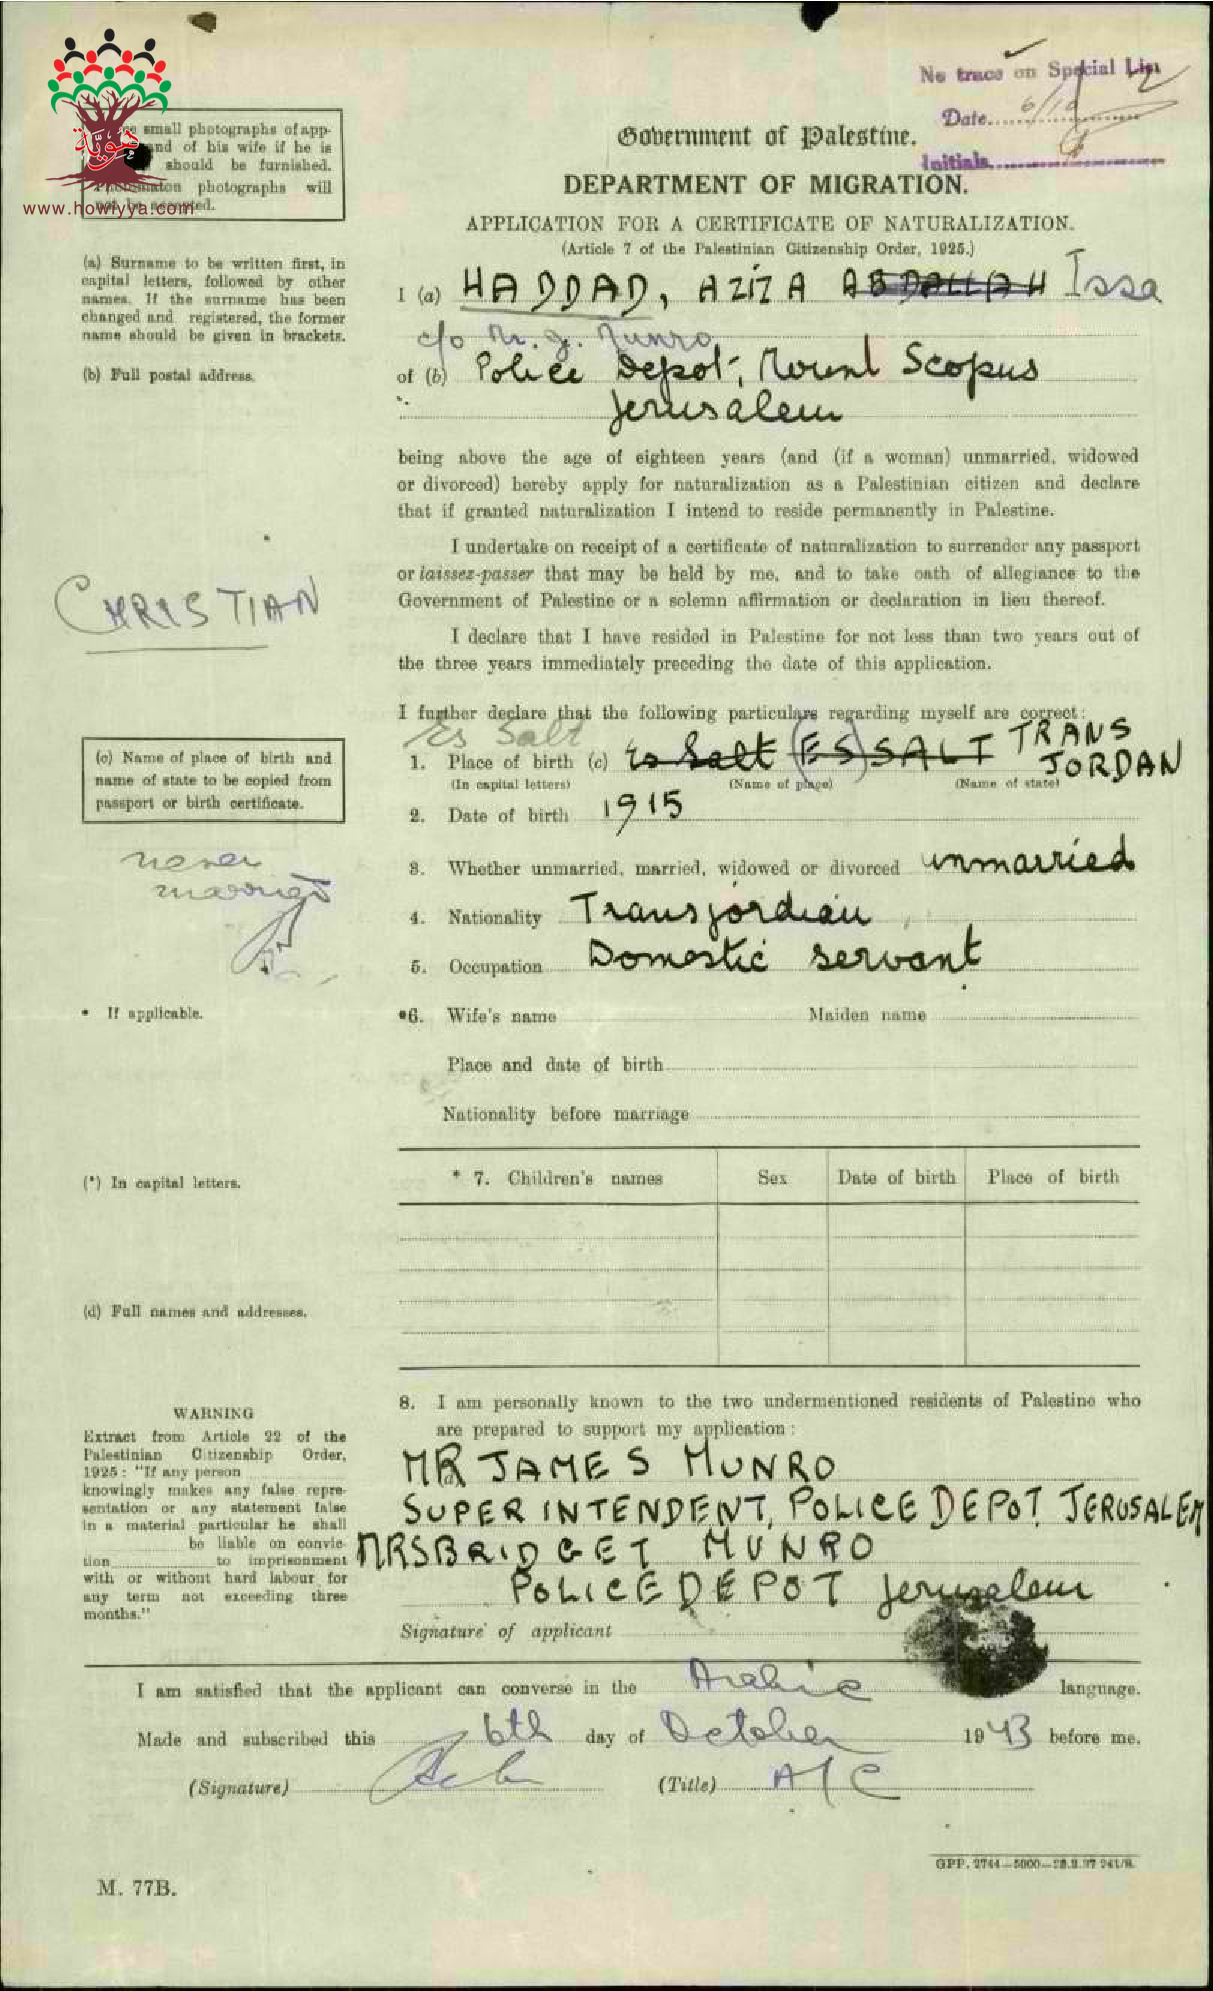 No trace on Special List
Date 6/10
Initials
هوية
www.howiyya.com
small photographs of app-
and of his wife if he is
should be furnished.
photographs will
not be accepted.
Government of Palestine.
DEPARTMENT OF MIGRATION.
APPLICATION FOR A CERTIFICATE OF NATURALIZATION.
(Article 7 of the Palestinian Citizenship Order, 1925.)
(a) Surname to be written first, in
capital letters, followed by other
names. If the surname has been
changed and registered, the former
name should be given in brackets.
I (a) HADDAD, AZIZA ABDALLAH Issa
c/o Mr. J. Munro
(b) Full postal address.
of (b) Police Depot, Mount Scopus
Jerusalem
being above the age of eighteen years (and (if a woman) unmarried, widowed
or divorced) hereby apply for naturalization as a Palestinian citizen and declare
that if granted naturalization I intend to reside permanently in Palestine.
I undertake on receipt of a certificate of naturalization to surrender any passport
or laissez-passer that may be held by me, and to take oath of allegiance to the
Government of Palestine or a solemn affirmation or declaration in lieu thereof.
CHRISTIAN
I declare that I have resided in Palestine for not less than two years out of
the three years immediately preceding the date of this application.
I further declare that the following particulars regarding myself are correct:
Es Salt
(c) Name of place of birth and
name of state to be copied from
passport or birth certificate.
1. Place of birth (c) Es Salt (ES) SALT TRANS
JORDAN
(In capital letters) (Name of place) (Name of state)
2. Date of birth 1915
never
married
3. Whether unmarried, married, widowed or divorced unmarried
4. Nationality Transjordian
5. Occupation Domestic servant
* If applicable.
*6. Wife's name Maiden name
Place and date of birth
Nationality before marriage
(*) In capital letters.
* 7. Children's names Sex Date of birth Place of birth
(d) Full names and addresses.
8. I am personally known to the two undermentioned residents of Palestine who
are prepared to support my application:
MR JAMES MUNRO
SUPERINTENDENT, POLICE DEPOT, JERUSALEM
MRS BRIDGET MUNRO
POLICE DEPOT Jerusalem
WARNING
Extract from Article 22 of the
Palestinian Citizenship Order,
1925: "If any person
knowingly makes any false repre-
sentation or any statement false
in a material particular he shall
be liable on convic-
tion to imprisonment
with or without hard labour for
any term not exceeding three
months."
Signature of applicant
I am satisfied that the applicant can converse in the Arabic language.
Made and subscribed this 6th day of October 1943 before me.
(Signature) (Title) A/C
GPP. 2744—5000—
M. 77B.